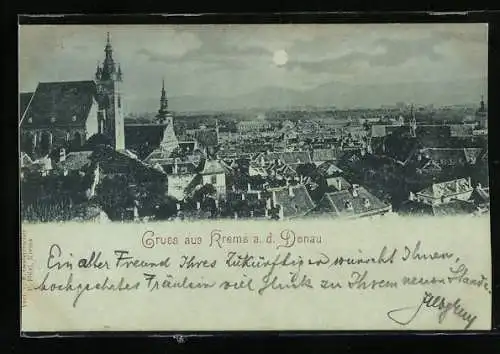 Gruss aus Krems a. d. Donau
Ein alter Freund Ihres Zukünftigen wünscht Ihnen,
hochgeehrtes Fräulein viel Glück zu Ihrem neuen Stande